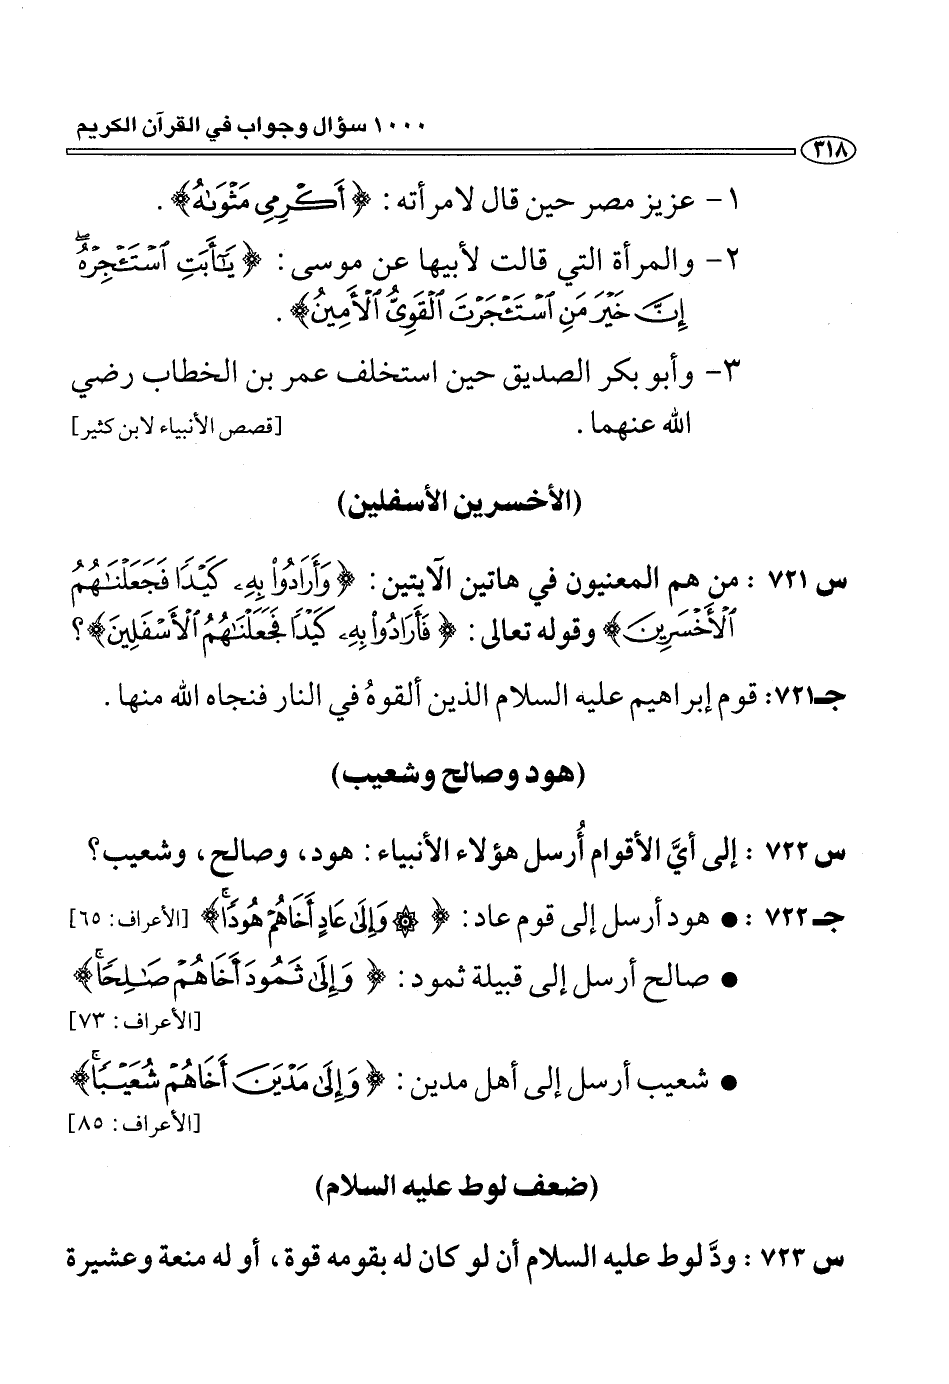 ١٠٠٠ سؤال وجواب في القرآن الكريم
٣١٨
١- عزيز مصر حين قال لامرأته: ﴿أَكْرِمِى مَثْوَىٰهُ﴾.
٢- والمرأة التي قالت لأبيها عن موسى: ﴿يَٰٓأَبَتِ ٱسْتَـْٔجِرْهُ ۖ
إِنَّ خَيْرَ مَنِ ٱسْتَـْٔجَرْتَ ٱلْقَوِىُّ ٱلْأَمِينُ﴾.
٣- وأبو بكر الصديق حين استخلف عمر بن الخطاب رضي
الله عنهما. [قصص الأنبياء لابن كثير]
(الأخسرين الأسفلين)
س ٧٢١ : من هم المعنيون في هاتين الآيتين: ﴿وَأَرَادُوا۟ بِهِۦ كَيْدًا فَجَعَلْنَٰهُمُ
ٱلْأَخْسَرِينَ﴾ وقوله تعالى: ﴿فَأَرَادُوا۟ بِهِۦ كَيْدًا فَجَعَلْنَٰهُمُ ٱلْأَسْفَلِينَ﴾؟
جـ٧٢١: قوم إبراهيم عليه السلام الذين ألقوهُ في النار فنجاه الله منها.
(هود وصالح وشعيب)
س ٧٢٢ : إلى أيَّ الأقوام أُرسل هؤلاء الأنبياء: هود، وصالح، وشعيب؟
جـ٧٢٢ : ● هود أرسل إلى قوم عاد: ﴿۞ وَإِلَىٰ عَادٍ أَخَاهُمْ هُودًا ۚ﴾ [الأعراف: ٦٥]
● صالح أرسل إلى قبيلة ثمود: ﴿وَإِلَىٰ ثَمُودَ أَخَاهُمْ صَٰلِحًا ۚ﴾
[الأعراف: ٧٣]
● شعيب أرسل إلى أهل مدين: ﴿وَإِلَىٰ مَدْيَنَ أَخَاهُمْ شُعَيْبًا ۚ﴾
[الأعراف: ٨٥]
(ضعف لوط عليه السلام)
س ٧٢٣ : ودَّ لوط عليه السلام أن لو كان له بقومه قوة، أو له منعة وعشيرة